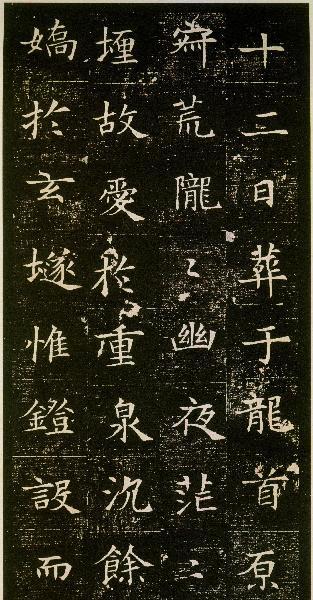 十二日葬于龍首原
荒隴〻幽夜茫〻
堙故愛於重泉沉餘
嬌於玄隧惟鐙設而